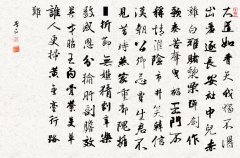 大道如青天我獨不得
出羞逐長安社中兒赤
雞白雉賭梨栗彈劍作
歌奏苦聲曳裾王門不
稱情淮陰市井笑韓信
漢朝公卿忌賈生君不
見昔時燕家重郭隗擁
篲折節無嫌猜劇辛樂
毅感恩分輸肝剖膽效
英才昭王白骨縈蔓草
誰人更掃黃金臺行路
難